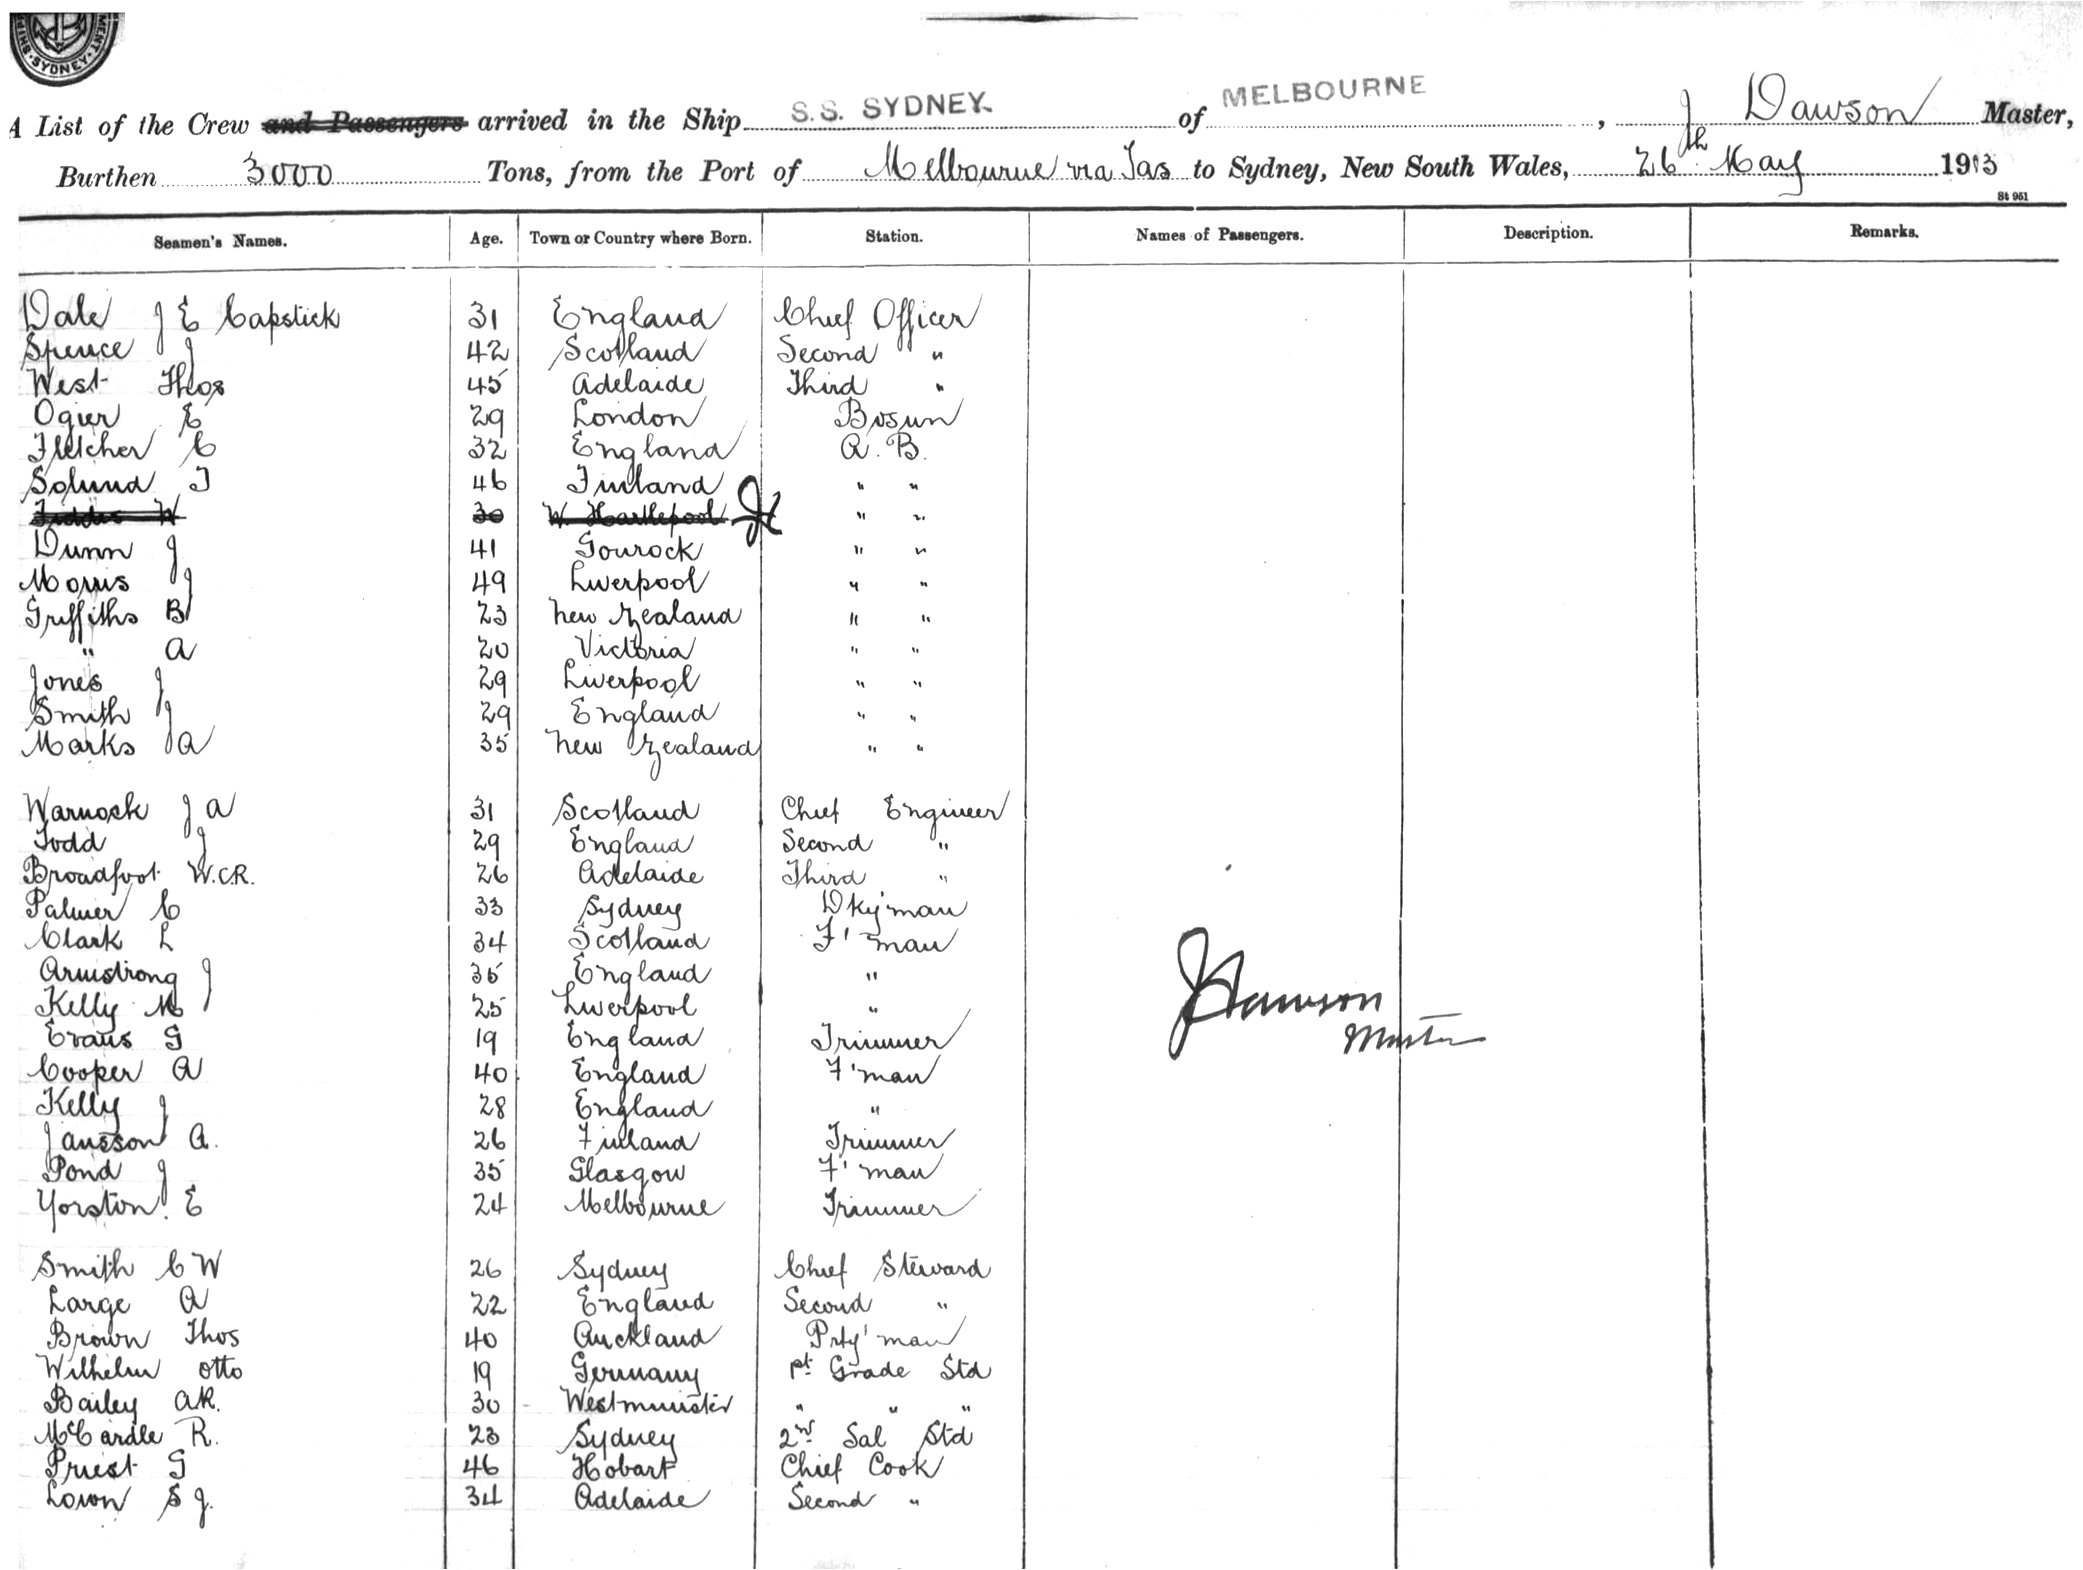 SYDNEY
A List of the Crew and Passengers arrived in the Ship S.S. SYDNEY. of MELBOURNE, J Dawson Master,
Burthen 3000 Tons, from the Port of Melbourne via Tas to Sydney, New South Wales, 26th May 1913
St 951
Seamen's Names. Age. Town or Country where Born. Station. Names of Passengers. Description. Remarks.
Dale J E Capstick 31 England Chief Officer
Spence J 42 Scotland Second "
West Thos 45 Adelaide Third "
Ogier E 29 London Bosun
Fletcher C 32 England A. B.
Solund J 46 Finland " "
W 30 W. Hartlepool " "
Dunn J 41 Gourock " "
Morris J 49 Liverpool " "
Griffiths B 23 New Zealand " "
" A 20 Victoria " "
Jones J 29 Liverpool " "
Smith J 29 England " "
Marks A 35 New Zealand " "
Warnock J A 31 Scotland Chief Engineer
Todd J 29 England Second "
Broadfoot W.C.R. 26 Adelaide Third "
Palmer C 33 Sydney Dky'man
Clark L 34 Scotland F'man
Armstrong J 35 England "
Kelly M 25 Liverpool "
Evans G 19 England Trimmer
Cooper A 40 England F'man
Kelly J 28 England "
Jansson A. 26 Finland Trimmer
Pond J 35 Glasgow F'man
Yorston. E 24 Melbourne Trimmer
JDawson
Master
Smith C W 26 Sydney Chief Steward
Large A 22 England Second "
Brown Thos 40 Auckland Prty'man
Wilhelm Otto 19 Germany 1st Grade Std
Bailey A R. 30 Westminster " " "
McCardle R. 23 Sydney 2nd Sal Std
Priest G 46 Hobart Chief Cook
Lown S J. 34 Adelaide Second "